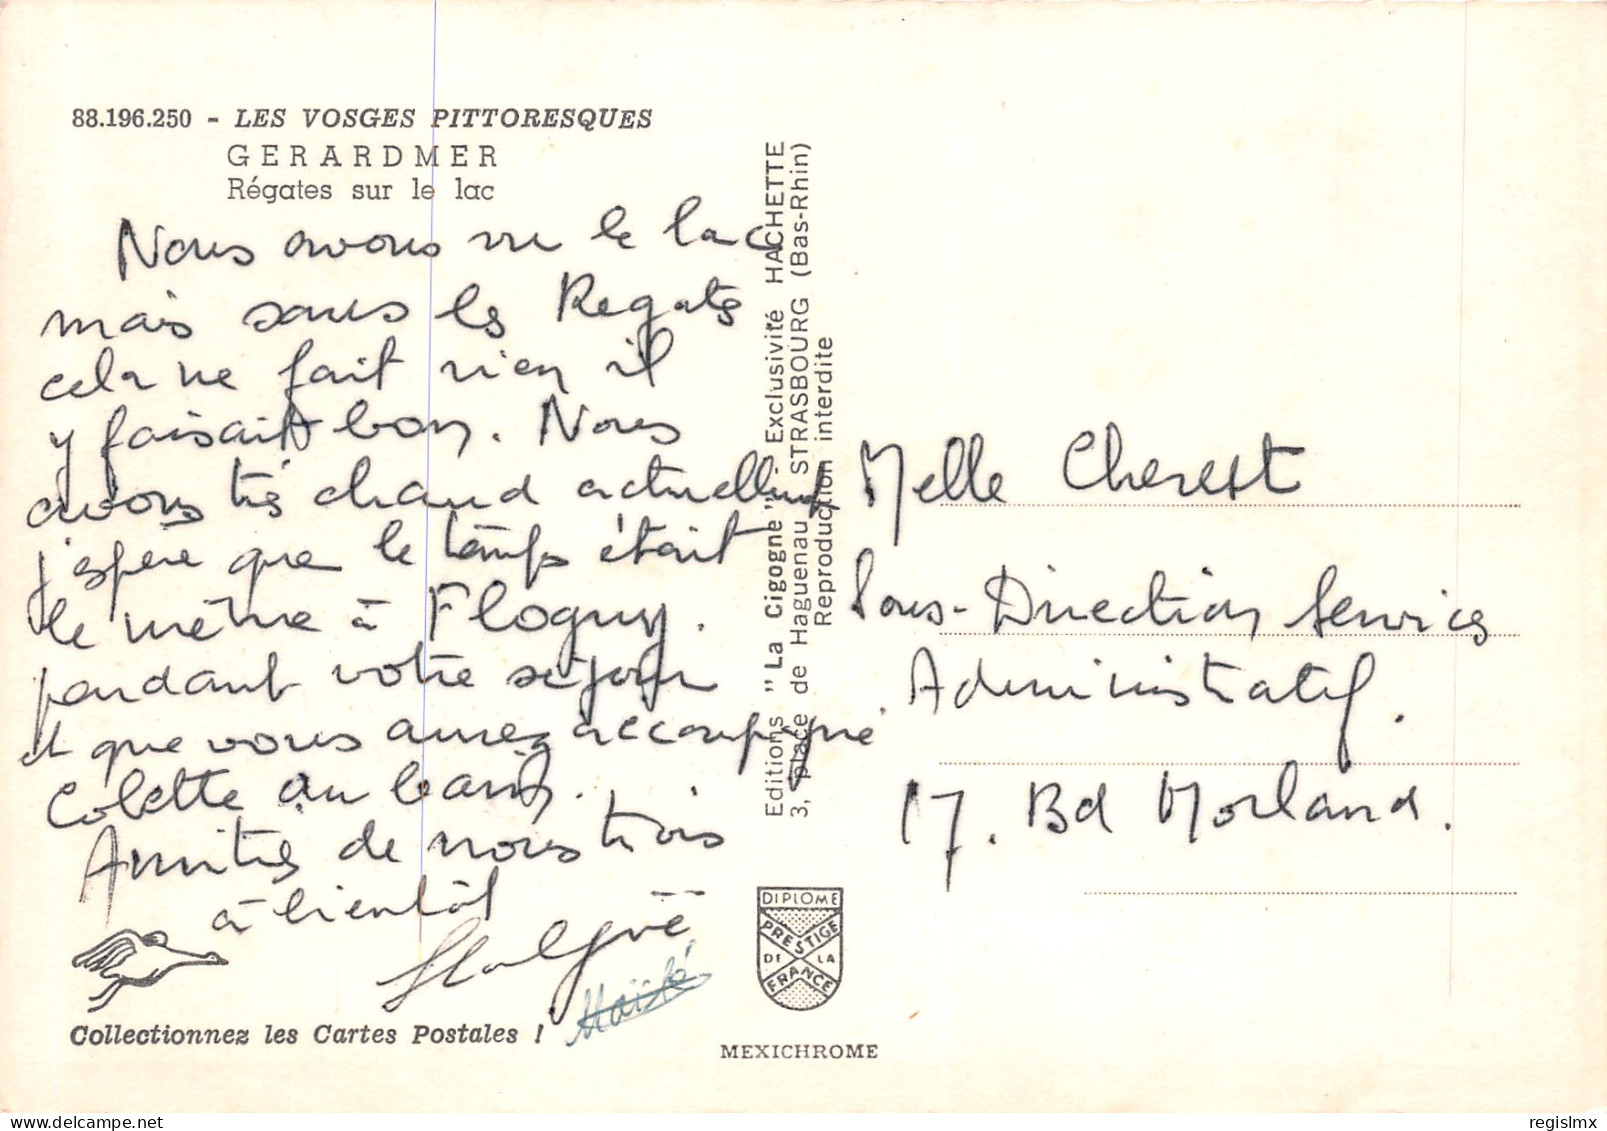 88.196.250 - LES VOSGES PITTORESQUES
GERARDMER
Régates sur le lac
Nous avons vu le lac
mais sans les Regates
cela ne fait rien il
y faisait bon. Nous
avons très chaud actuellement
j'espère que le temps était
le même à Flogny.
pendant votre séjour
et que vous aurez accompagné
Colette au bain.
Amitiés de nous trois
à bientôt
Maïté
Collectionnez les Cartes Postales !
Editions "La Cigogne" - Exclusivité HACHETTE
3, place de Haguenau STRASBOURG (Bas-Rhin)
Reproduction interdite
DIPLOME
PRESTIGE
DE LA
FRANCE
MEXICHROME
Melle Cherest
Sous-Direction Services
Administratif.
17. Bd Morland.
regislmx